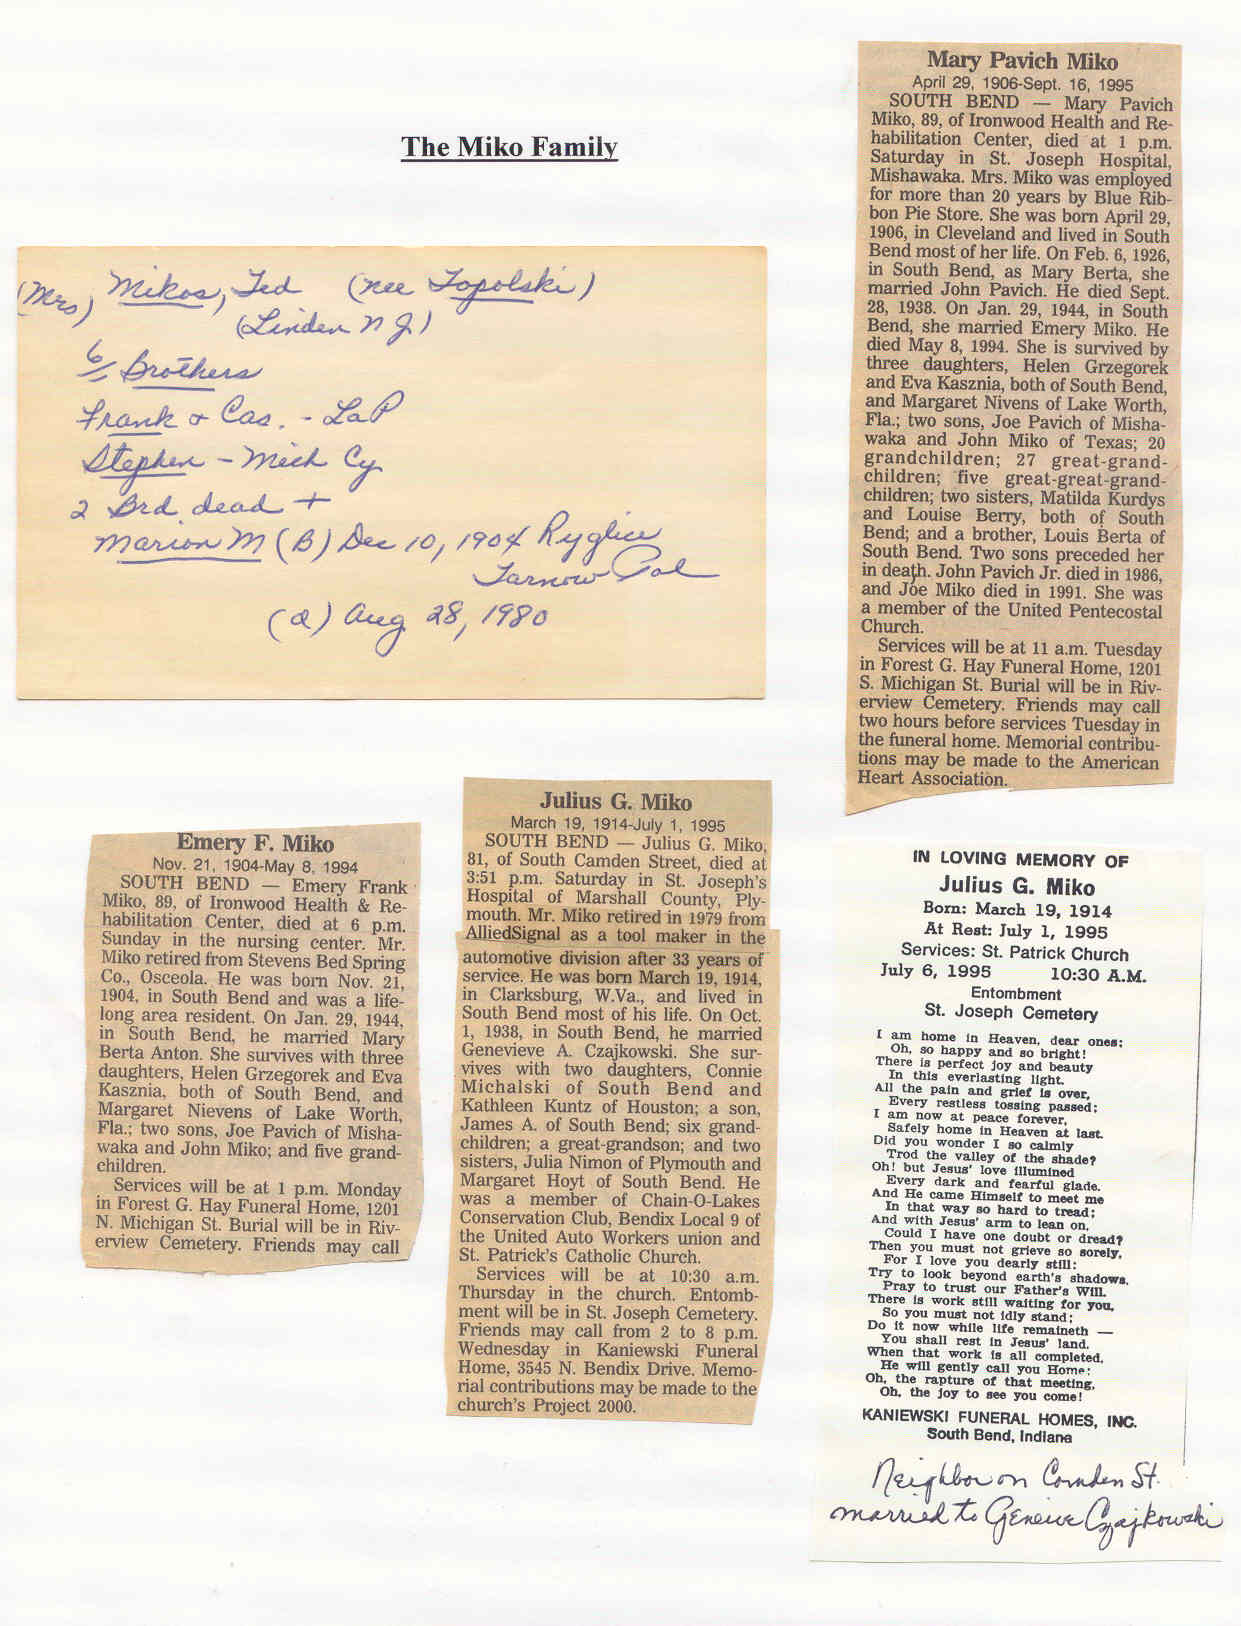 The Miko Family
(Mrs) Mikos, Ted (nee Topolski)
(Linden N J)
6 Brothers
Frank & Cas. - LaP
Stephen - Mich Cy
2 Brd dead +
Marion M (B) Dec 10, 1904 Ryglice
Tarnow Pol
(d) Aug 28, 1980
Mary Pavich Miko
April 29, 1906-Sept. 16, 1995
SOUTH BEND — Mary Pavich
Miko, 89, of Ironwood Health and Re-
habilitation Center, died at 1 p.m.
Saturday in St. Joseph Hospital,
Mishawaka. Mrs. Miko was employed
for more than 20 years by Blue Rib-
bon Pie Store. She was born April 29,
1906, in Cleveland and lived in South
Bend most of her life. On Feb. 6, 1926,
in South Bend, as Mary Berta, she
married John Pavich. He died Sept.
28, 1938. On Jan. 29, 1944, in South
Bend, she married Emery Miko. He
died May 8, 1994. She is survived by
three daughters, Helen Grzegorek
and Eva Kasznia, both of South Bend,
and Margaret Nivens of Lake Worth,
Fla.; two sons, Joe Pavich of Misha-
waka and John Miko of Texas; 20
grandchildren; 27 great-grand-
children; five great-great-grand-
children; two sisters, Matilda Kurdys
and Louise Berry, both of South
Bend; and a brother, Louis Berta of
South Bend. Two sons preceded her
in death. John Pavich Jr. died in 1986,
and Joe Miko died in 1991. She was
a member of the United Pentecostal
Church.
Services will be at 11 a.m. Tuesday
in Forest G. Hay Funeral Home, 1201
S. Michigan St. Burial will be in Riv-
erview Cemetery. Friends may call
two hours before services Tuesday in
the funeral home. Memorial contribu-
tions may be made to the American
Heart Association.
Emery F. Miko
Nov. 21, 1904-May 8, 1994
SOUTH BEND — Emery Frank
Miko, 89, of Ironwood Health & Re-
habilitation Center, died at 6 p.m.
Sunday in the nursing center. Mr.
Miko retired from Stevens Bed Spring
Co., Osceola. He was born Nov. 21,
1904, in South Bend and was a life-
long area resident. On Jan. 29, 1944,
in South Bend, he married Mary
Berta Anton. She survives with three
daughters, Helen Grzegorek and Eva
Kasznia, both of South Bend, and
Margaret Nievens of Lake Worth,
Fla.; two sons, Joe Pavich of Misha-
waka and John Miko; and five grand-
children.
Services will be at 1 p.m. Monday
in Forest G. Hay Funeral Home, 1201
N. Michigan St. Burial will be in Riv-
erview Cemetery. Friends may call
Julius G. Miko
March 19, 1914-July 1, 1995
SOUTH BEND — Julius G. Miko,
81, of South Camden Street, died at
3:51 p.m. Saturday in St. Joseph's
Hospital of Marshall County, Ply-
mouth. Mr. Miko retired in 1979 from
AlliedSignal as a tool maker in the
automotive division after 33 years of
service. He was born March 19, 1914,
in Clarksburg, W.Va., and lived in
South Bend most of his life. On Oct.
1, 1938, in South Bend, he married
Genevieve A. Czajkowski. She sur-
vives with two daughters, Connie
Michalski of South Bend and
Kathleen Kuntz of Houston; a son,
James A. of South Bend; six grand-
children; a great-grandson; and two
sisters, Julia Nimon of Plymouth and
Margaret Hoyt of South Bend. He
was a member of Chain-O-Lakes
Conservation Club, Bendix Local 9 of
the United Auto Workers union and
St. Patrick's Catholic Church.
Services will be at 10:30 a.m.
Thursday in the church. Entomb-
ment will be in St. Joseph Cemetery.
Friends may call from 2 to 8 p.m.
Wednesday in Kaniewski Funeral
Home, 3545 N. Bendix Drive. Memo-
rial contributions may be made to the
church's Project 2000.
IN LOVING MEMORY OF
Julius G. Miko
Born: March 19, 1914
At Rest: July 1, 1995
Services: St. Patrick Church
July 6, 1995 10:30 A.M.
Entombment
St. Joseph Cemetery
I am home in Heaven, dear ones;
Oh, so happy and so bright!
There is perfect joy and beauty
In this everlasting light.
All the pain and grief is over,
Every restless tossing passed;
I am now at peace forever,
Safely home in Heaven at last.
Did you wonder I so calmly
Trod the valley of the shade?
Oh! but Jesus' love illumined
Every dark and fearful glade.
And He came Himself to meet me
In that way so hard to tread;
And with Jesus' arm to lean on,
Could I have one doubt or dread?
Then you must not grieve so sorely,
For I love you dearly still:
Try to look beyond earth's shadows,
Pray to trust our Father's Will.
There is work still waiting for you,
So you must not idly stand;
Do it now while life remaineth —
You shall rest in Jesus' land.
When that work is all completed,
He will gently call you Home;
Oh, the rapture of that meeting,
Oh, the joy to see you come!
KANIEWSKI FUNERAL HOMES, INC.
South Bend, Indiana
Neighbor on Camden St.
married to Geneive Czajkowski